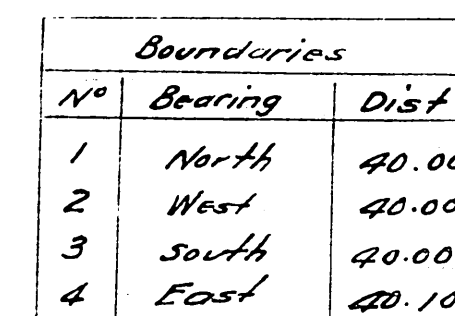 Boundaries
Nº Bearing Dist
1 North 40.00
2 West 40.00
3 South 40.00
4 East 40.10